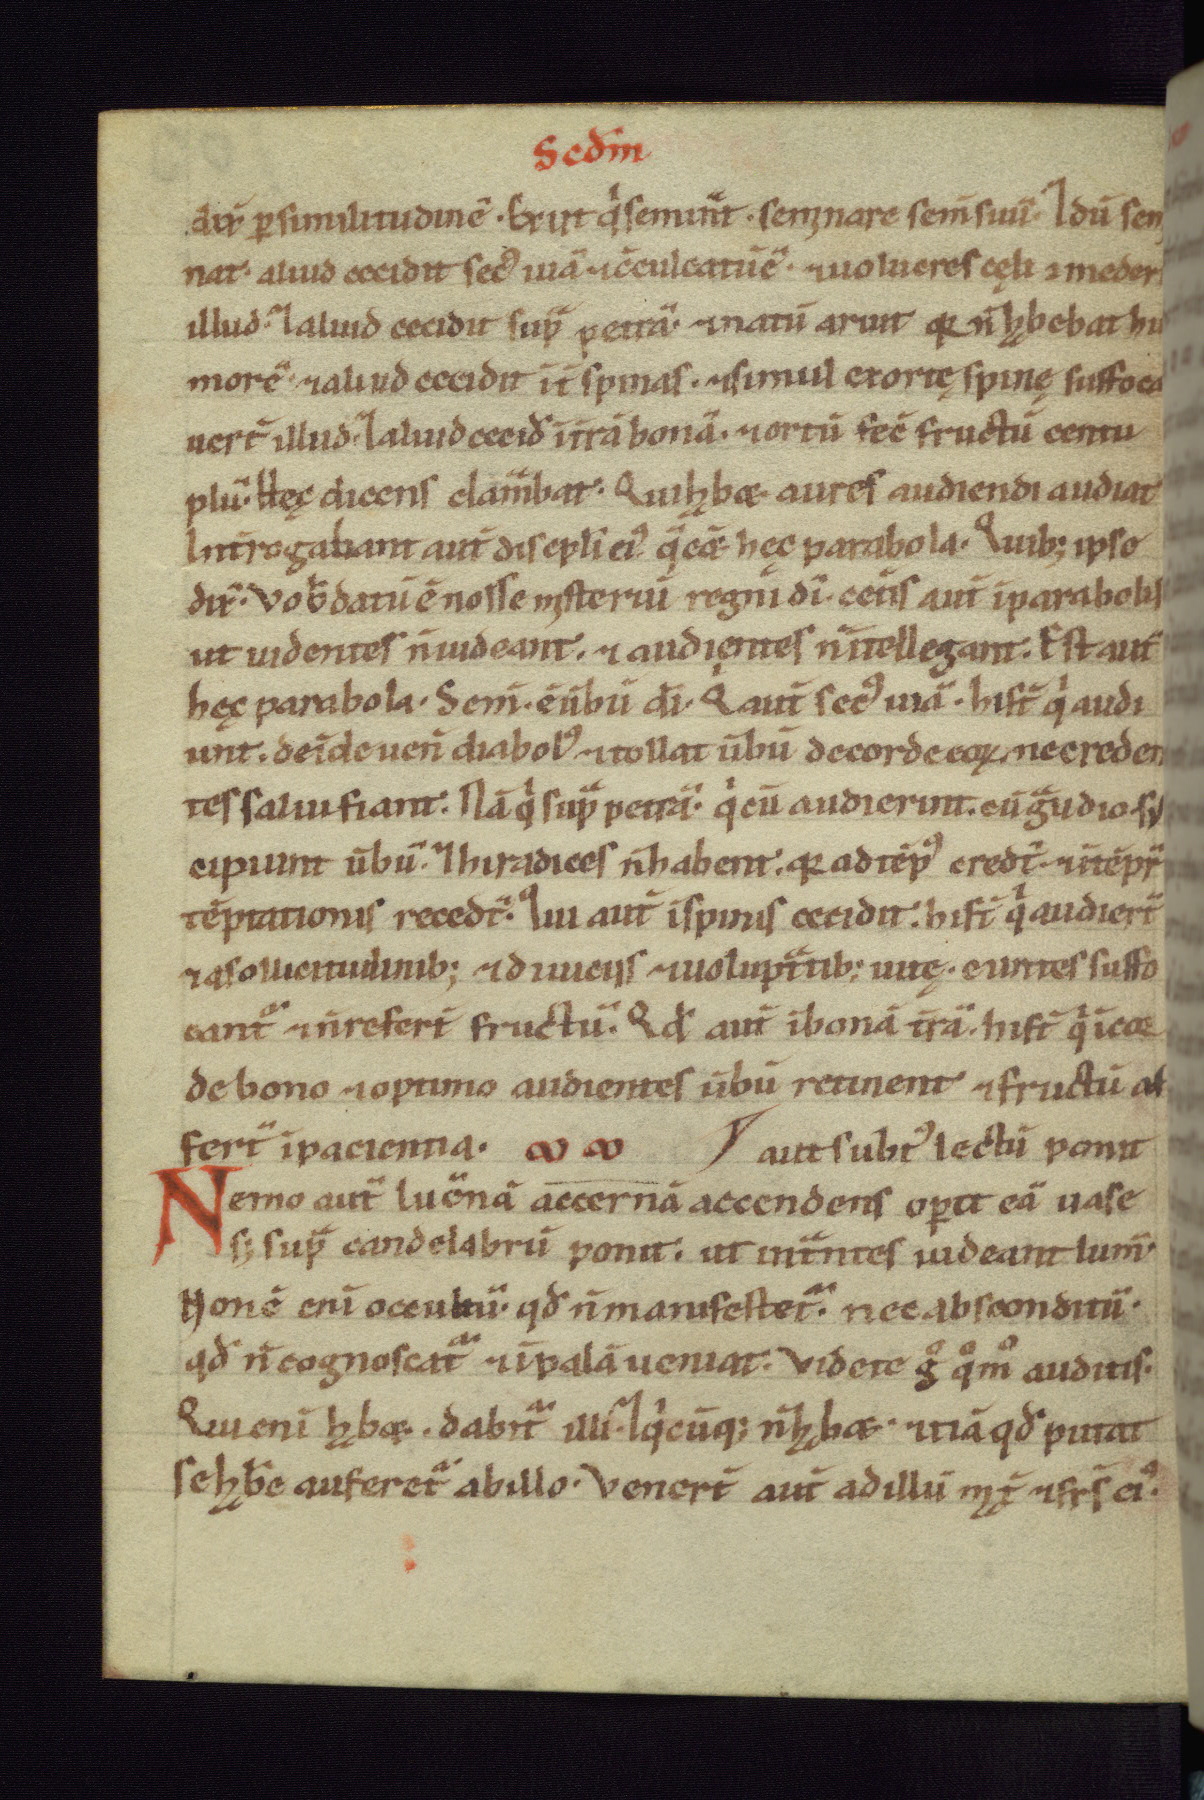 Scdm
dix̄ p similitudinē · Exiit qͥ seminat · seminare sem̄ suū · I dū semi
nat · aliud cecidit secꝰ uiā · ⁊ c̄culcatū ē · ⁊ uolucres cęli comeder
illud · I aliud cecidit sup̄ petrā · ⁊ natū aruit qr n̄ habebat hu
morē · ⁊ aliud cecidit int̄ spinas · ⁊ simul exortę spinę suffoca
uert̄ illud · I aliud cecid̄ i t̄rā bonā · ⁊ ortū fec̄ fructū centu
plū · Hęc dicens clamabat · Qui habæ aures audiendi audiat
Int̄rogabant aut̄ discipli eiꝰ q̄ eēt hęc parabola · Quibꝫ ipse
dix̄ · Vob̄ datū ē nosse mysteriū regni dī · cet̄is aut̄ i parabolis
ut uidentes n̄ uideant · ⁊ audientes n̄ itellegant · Est aut̄
hęc parabola · Sem̄ · ē ūbū dī · Q aut̄ secꝰ uiā · hi st̄ qͥ audi
unt · deīde uen̄ diabolꝰ ⁊ tollat ūbū de corde eoꝝ ne creden
tes salui fiant · Nā qͥ sup̄ petrā · qͥ cū audierint · cū gaudio sus
cipiunt ūbū · I hi radices n̄ habent · qr ad tēpꝰ credt̄ · ⁊ i tēpr̄
tēptationis recedt̄ · Qui aut̄ i spinis cecidit · hi st̄ qͥ audiert̄
⁊ a sollicitudinibꝫ ⁊ diuiciis ⁊ uoluptatibꝫ uitę · euntes suffo
cant̄ ⁊ n̄ refert̄ fructū · Qd̄ aut̄ i bonā t̄rā · hi st̄ qͥ i corde
de bono ⁊ optimo audientes ūbū retinent ⁊ fructū af
fert̄ i paciencia · aut subtꝰ lectū ponit
Nemo aut̄ lucernā accendens opit eā uase
sꝫ sup̄ candelabrū ponit · ut intrantes uideant lum̄ ·
Non ē eni occultū · qd̄ n̄ manifestet̄ · nec absconditū ·
qd̄ n̄ cognoscat̄ ⁊ i palā ueniat · Videte gͦ qͦmͦ auditis ·
Qui eni habæ · dabit̄ illi · I qͥcūqꝫ n̄ habæ · ⁊tiā qd̄ putat
se habe auferet̄ ab illo · Venert̄ aut̄ ad illū mat̄ ⁊ frs̄ eiꝰ ·